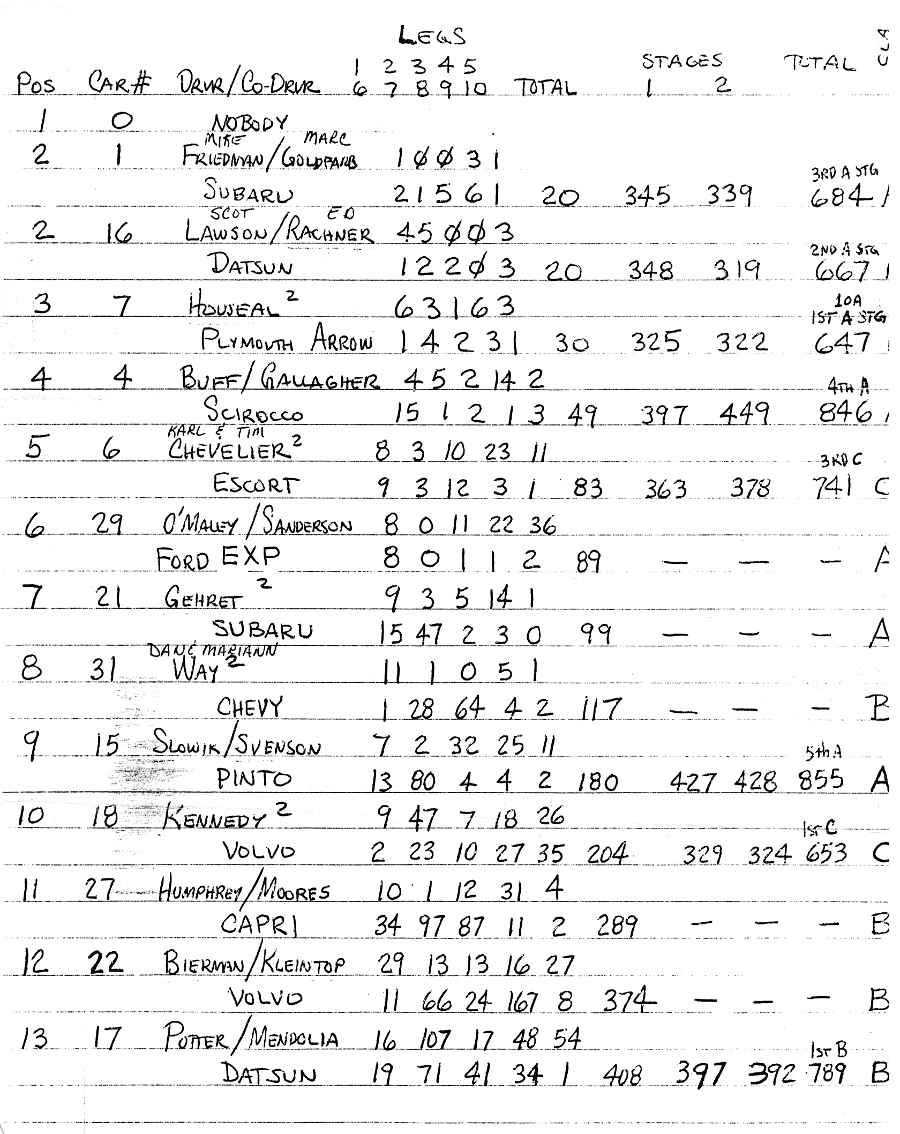 LEGS
1 2 3 4 5 STAGES TOTAL CLA
POS CAR# DRVR/CO-DRVR 6 7 8 9 10 TOTAL 1 2
1 0 NOBODY
MIKE MARC
2 1 FRIEDMAN/GOLDFARB 1 0 0 3 1
3RD A STG
SUBARU 2 1 5 6 1 20 345 339 684 A
SCOT ED
2 16 LAWSON/RACHNER 4 5 0 0 3
2ND A STG
DATSUN 1 2 2 0 3 20 348 319 667
3 7 HOUSEAL 2 6 3 1 6 3 10A
1ST A STG
PLYMOUTH ARROW 1 4 2 3 1 30 325 322 647
4 4 BUFF/GALLAGHER 4 5 2 14 2
4TH A
SCIROCCO 15 1 2 1 3 49 397 449 846 A
KARL & TIM
5 6 CHEVELIER 2 8 3 10 23 11
3RD C
ESCORT 9 3 12 3 1 83 363 378 741 C
6 29 O'MALEY/SANDERSON 8 0 11 22 36
FORD EXP 8 0 1 1 2 89 — — — A
7 21 GEHRET 2 9 3 5 14 1
SUBARU 15 47 2 3 0 99 — — — A
DAN & MARIANN
8 31 WAY 2 11 1 0 5 1
CHEVY 1 28 64 4 2 117 — — — B
9 15 SLOWIK/SVENSON 7 2 32 25 11
5th A
PINTO 13 80 4 4 2 180 427 428 855 A
10 18 KENNEDY 2 9 47 7 18 26
1ST C
VOLVO 2 23 10 27 35 204 329 324 653 C
11 27 HUMPHREY/MOORES 10 1 12 31 4
CAPRI 34 97 87 11 2 289 — — — B
12 22 BIERMAN/KLEINTOP 29 13 13 16 27
VOLVO 11 66 24 167 8 374 — — — B
13 17 POTTER/MENDOLIA 16 107 17 48 54
1ST B
DATSUN 19 71 41 34 1 408 397 392 789 B